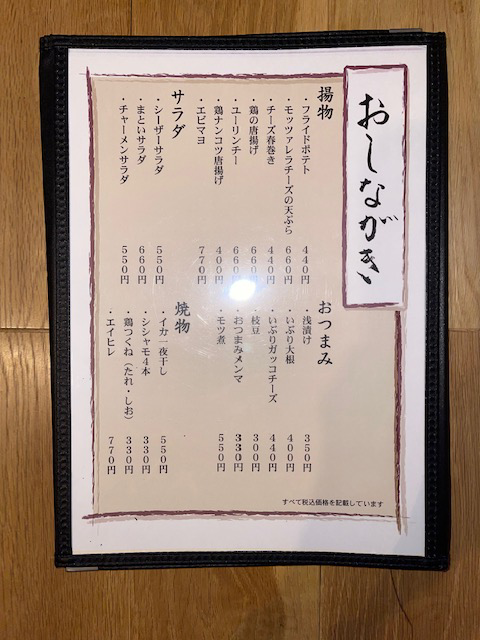 おしながき
揚物
・フライドポテト 440円
・モッツァレラチーズの天ぷら 660円
・チーズ春巻き 440円
・鶏の唐揚げ 660円
・ユーリンチー 660円
・鶏ナンコツ唐揚げ 400円
・エビマヨ 770円
サラダ
・シーザーサラダ 550円
・まといサラダ 660円
・チャーメンサラダ 550円
おつまみ
・浅漬け 350円
・いぶり大根 400円
・いぶりガッコチーズ 440円
・枝豆 300円
・おつまみメンマ 330円
・モツ煮 550円
焼物
・イカ一夜干し 550円
・シシャモ4本 330円
・鶏つくね（たれ・しお） 330円
・エイヒレ 770円
すべて税込価格を記載しています